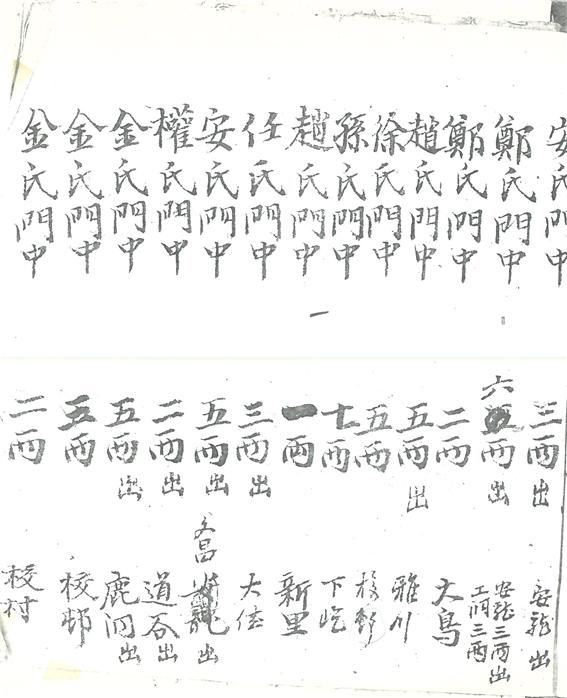 安氏門中 三兩出 安龍出
鄭氏門中 六兩出 安龍三兩出 三兩
鄭氏門中 二兩 大鳥
趙氏門中 五兩出 雅川
徐氏門中 五兩 校
孫氏門中 七兩 下屹
趙氏門中 一兩 新里
任氏門中 三兩出 大佳
安氏門中 五兩出 文昌 龍出
權氏門中 二兩出 道谷出
金氏門中 五兩出 鹿洞出
金氏門中 五兩 校邨
金氏門中 二兩 校村